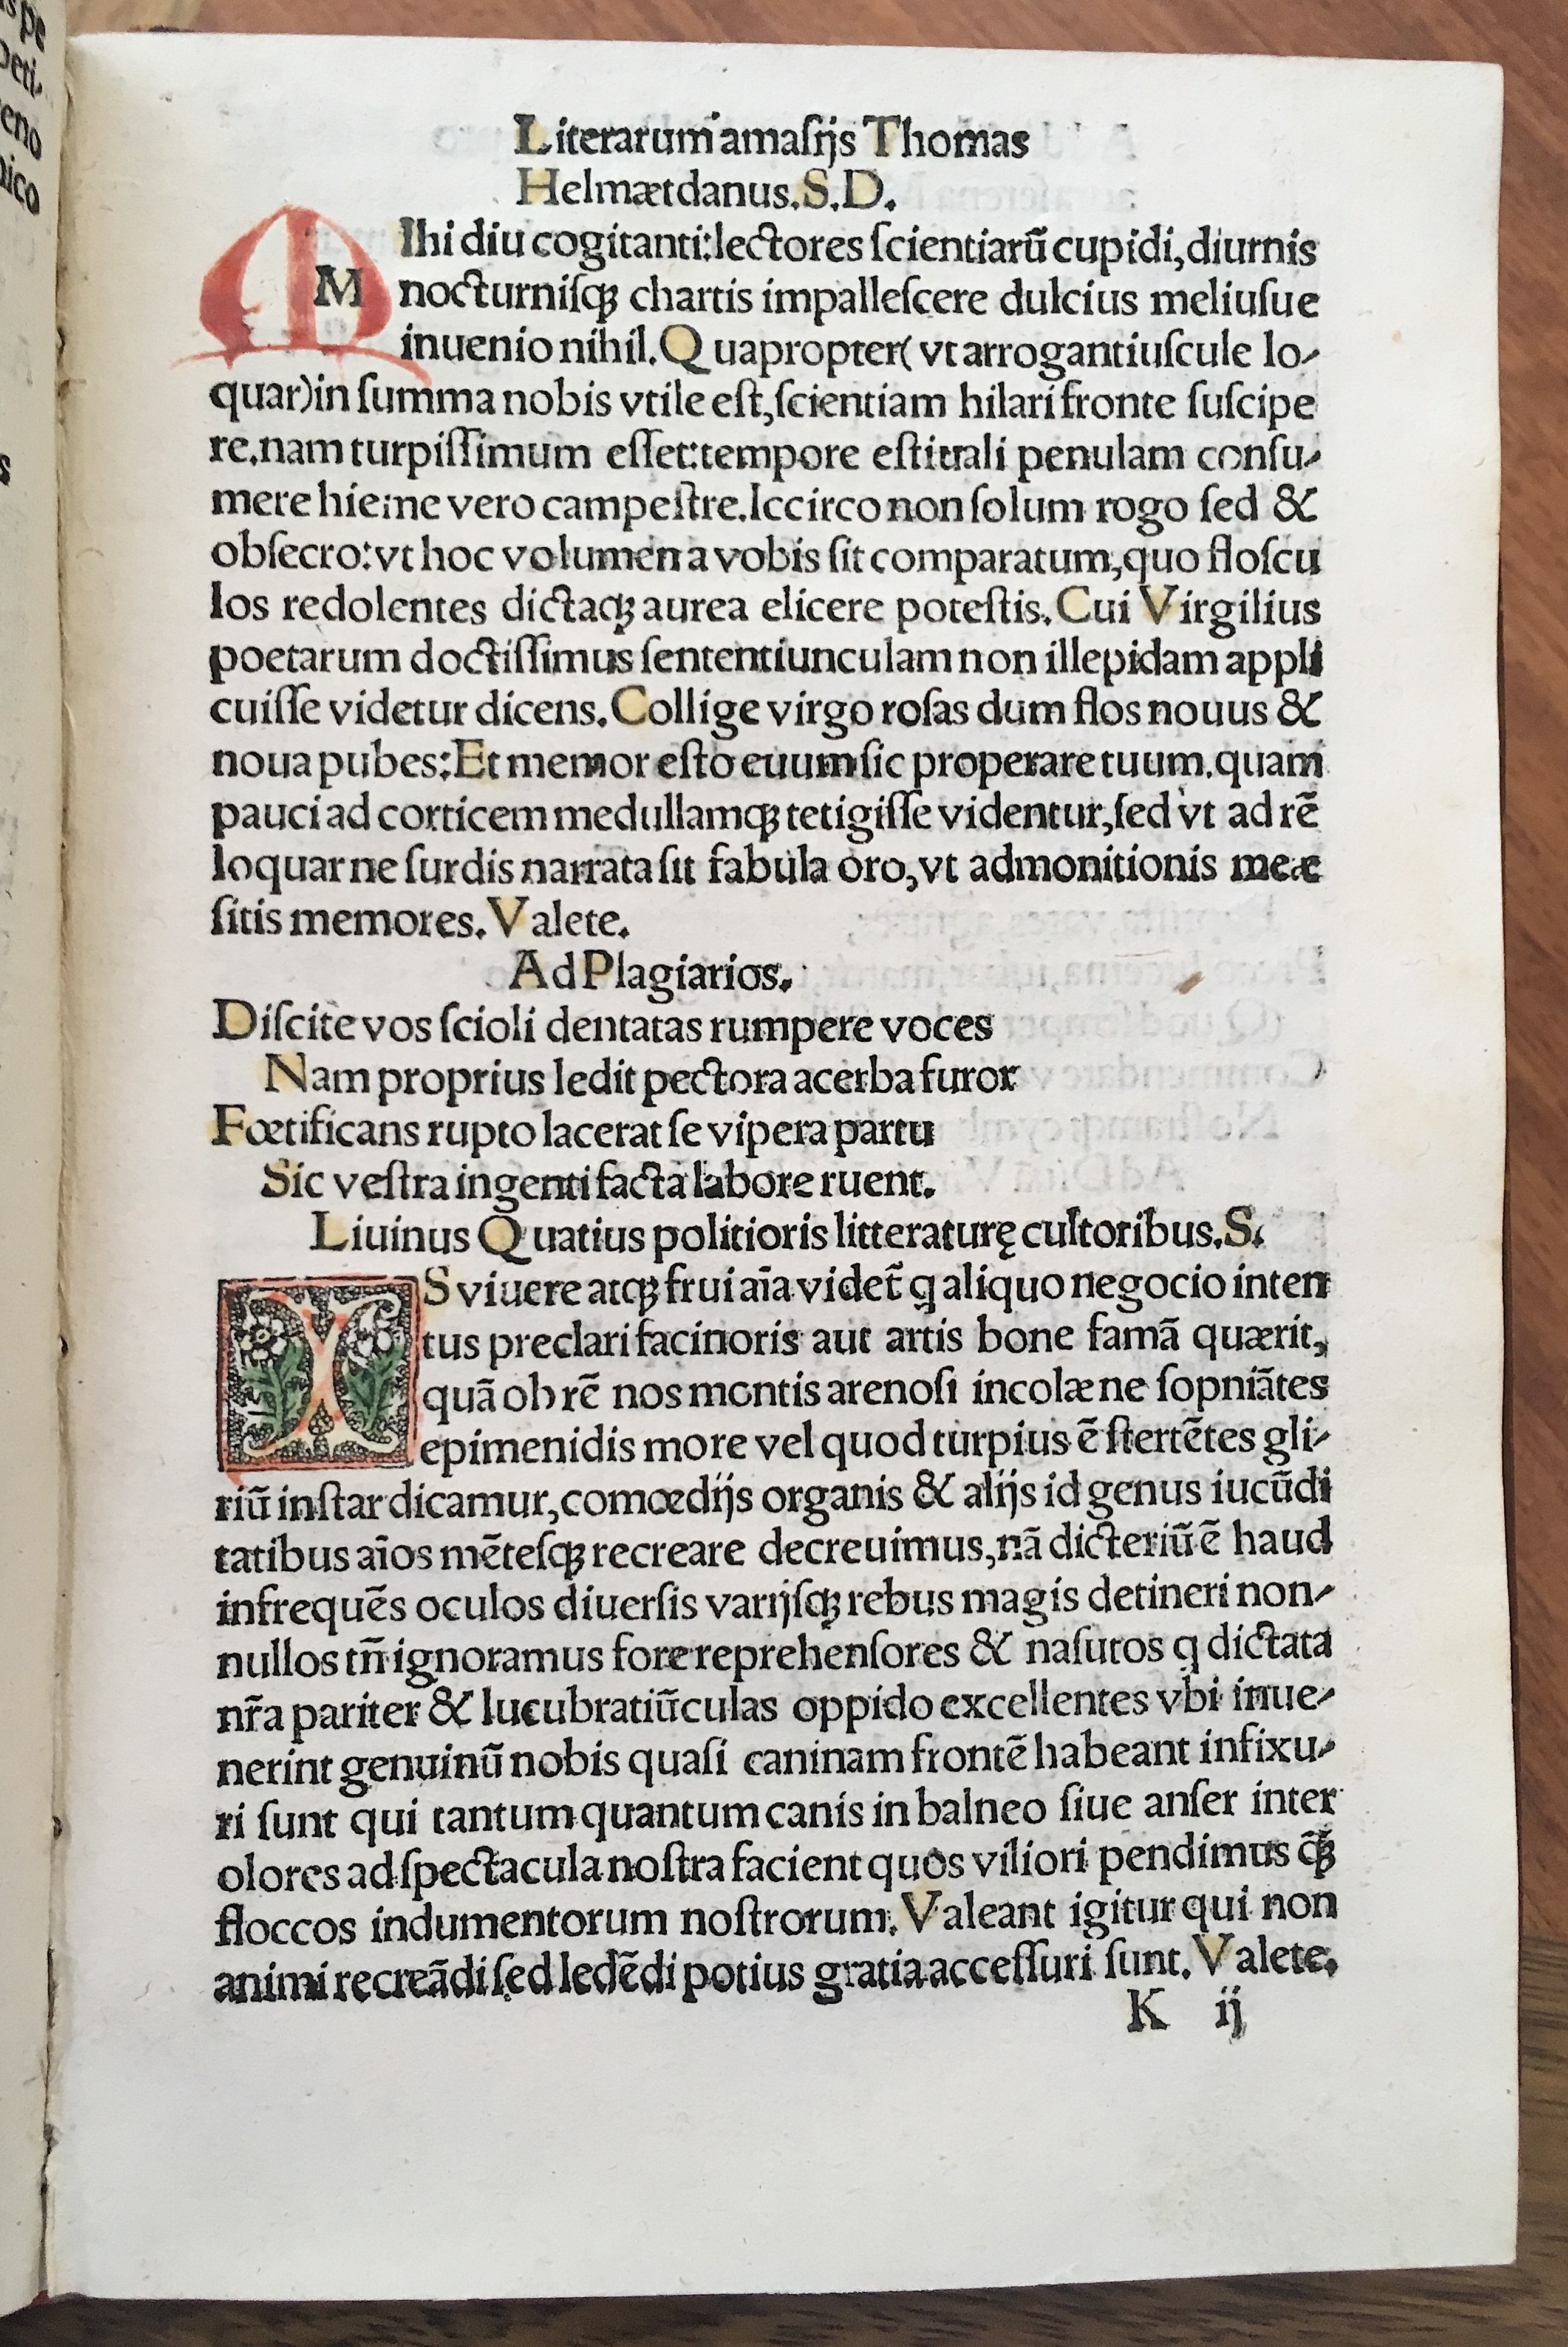 Literarum amasijs Thomas
Helmætdanus.S.D.
MIhi diu cogitanti:lectores ſcientiarū cupidi,diurnis
nocturniſqꝫ chartis impalleſcere dulcius meliuſue
inuenio nihil.Quapropter(vt arrogantiuſcule lo-
quar)in ſumma nobis vtile eſt,ſcientiam hilari fronte ſuſcipe
re.nam turpiſſimum eſſet:tempore eſtiuali penulam conſu-
mere hieme vero campeſtre.Iccirco non ſolum rogo ſed &
obſecro:vt hoc volumen a vobis ſit comparatum,quo floſcu
los redolentes dictaqꝫ aurea elicere poteſtis.Cui Virgilius
poetarum doctiſſimus ſententiunculam non illepidam appli
cuiſſe videtur dicens.Collige virgo roſas dum flos nouus &
noua pubes:Et memor eſto euum ſic properare tuum.quam
pauci ad corticem medullamqꝫ tetigiſſe videntur,ſed vt ad rē
loquar ne ſurdis narrata ſit fabula oro,vt admonitionis meæ
ſitis memores.Valete.
Ad Plagiarios.
Diſcite vos ſcioli dentatas rumpere voces
Nam proprius ledit pectora acerba furor
Fœtificans rupto lacerat ſe vipera partu
Sic veſtra ingenti facta labore ruent.
Liuinus Quatius politioris litteraturę cultoribus.S.
IS viuere atqꝫ frui aīa videt̃ q aliquo negocio inten
tus preclari facinoris aut artis bone famā quærit,
quā ob rē nos montis arenoſi incolæ ne ſopniātes
epimenidis more vel quod turpius ē ſtertētes gli-
riū inſtar dicamur,comœdijs organis & alijs id genus iucūdi
tatibus aīos mēteſqꝫ recreare decreuimus,nā dicteriū ē haud
infrequēs oculos diuerſis varijſqꝫ rebus magis detineri non-
nullos tn̄ ignoramus fore reprehenſores & naſutos q dictata
nr̄a pariter & lucubratiūculas oppido excellentes vbi inue-
nerint genuinū nobis quaſi caninam frontē habeant infixu-
ri ſunt qui tantum quantum canis in balneo ſiue anſer inter
olores ad ſpectacula noſtra facient quos viliori pendimus q̄ꝫ
floccos indumentorum noſtrorum.Valeant igitur qui non
animi recreādi ſed ledēdi potius gratia acceſſuri ſunt.Valete.
K ij